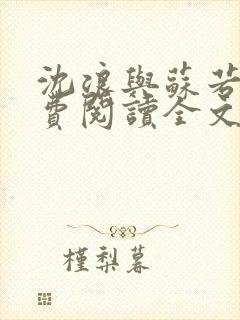 沈浪與蘇若
費閱讀全文
槿梨暮